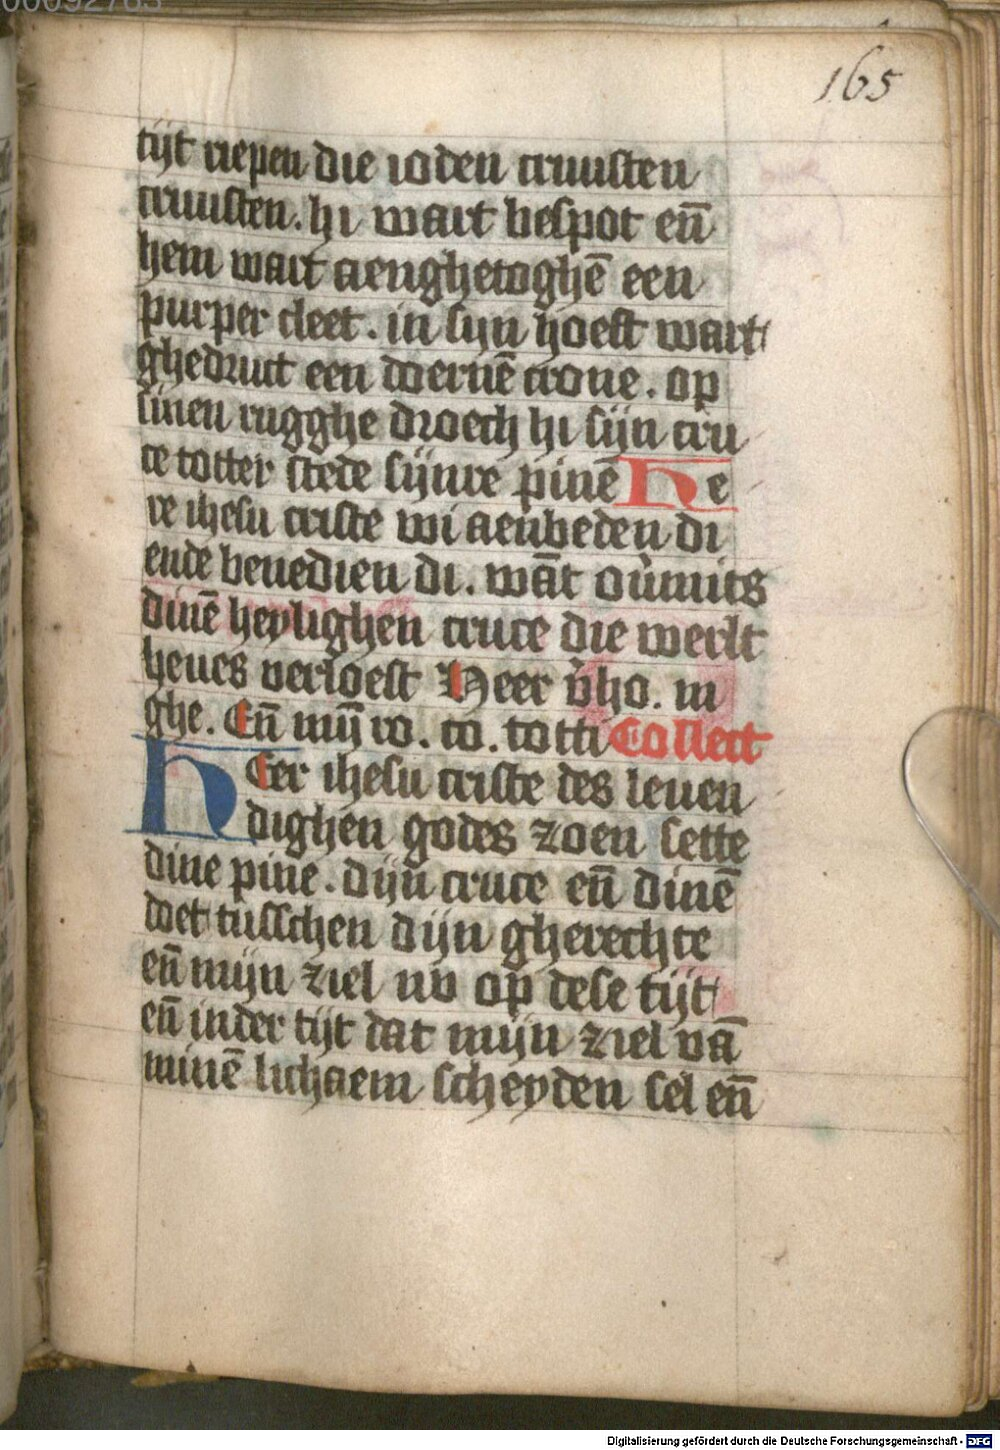 00092763
165
tijt riepen die ioden cruusten
cruusten. hi wart bespot en̄
hem wart aenghetoghē een
purper cleet. in sijn hoeft wart
ghedruct een doernē crone. op
sinen rugghe droech hi sijn cru
ce totter stede sijnre pinē He
re ihesu criste wi aenbeden di
ende benedien di. wāt oůmits
dinē heylighen cruce die werlt
heues verloest Heer v̓ho. m
ghe. En̄ mij̄ ro. co. totti Collect
HEer ihesu criste des leuen
dighen godes zoen sette
dine pine. dijn cruce en̄ dinē
doet tusschen dijn gherechte
en̄ mijn ziel nv op dese tijt
en̄ inder tijt dat mijn ziel vā
minē lichaem scheyden sel en̄
Digitalisierung gefördert durch die Deutsche Forschungsgemeinschaft - DFG